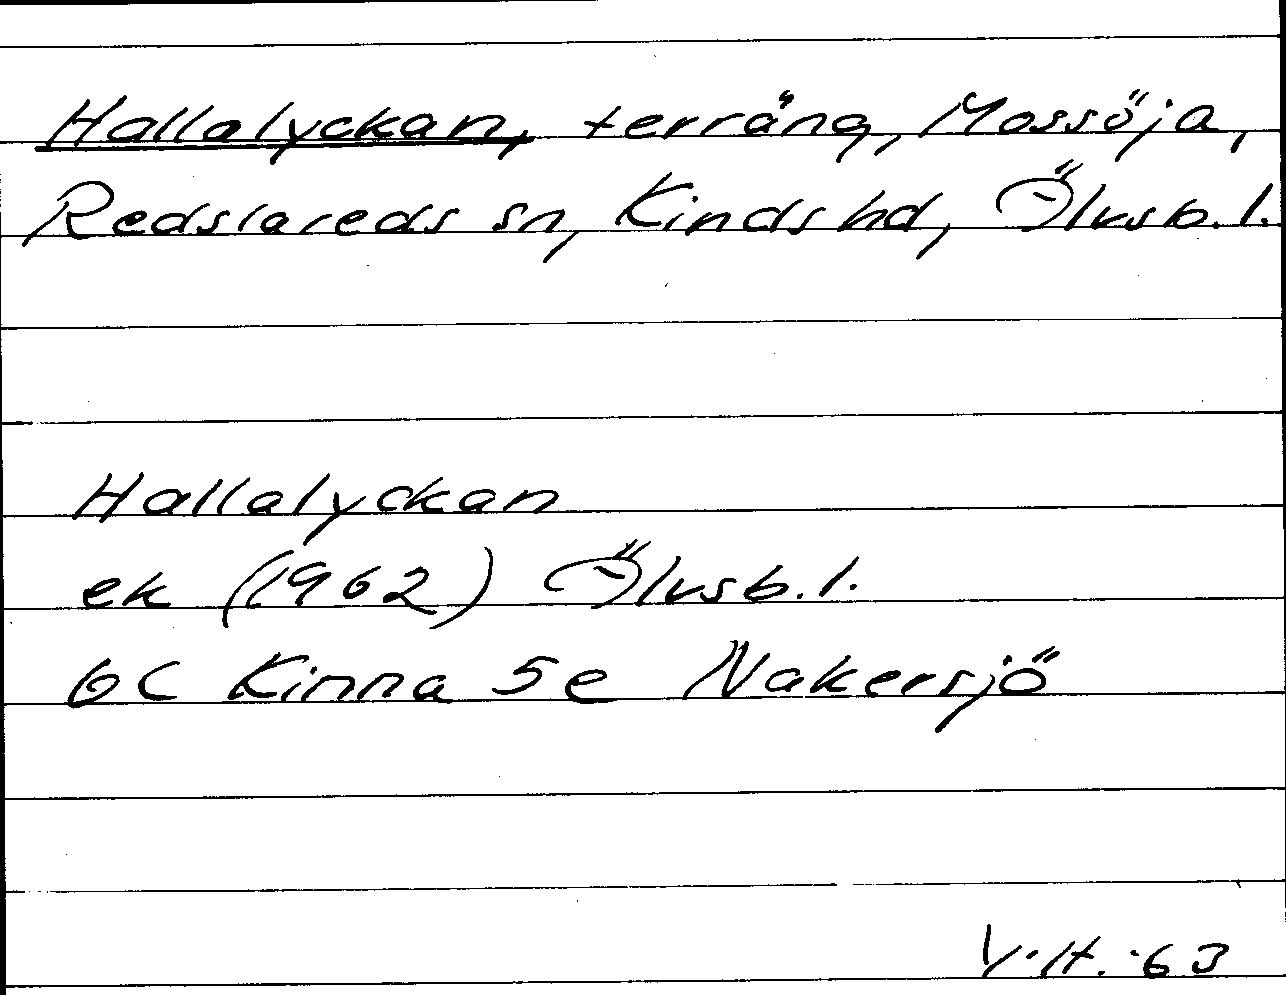 Hallalyckan, terräng, Mossöja,
Redslareds sn, Kinds hd, Älvsb. l.
Hallalyckan
ek (1962) Älvsb. l.
6C Kinna 5e Nakersjö
V.H. -63